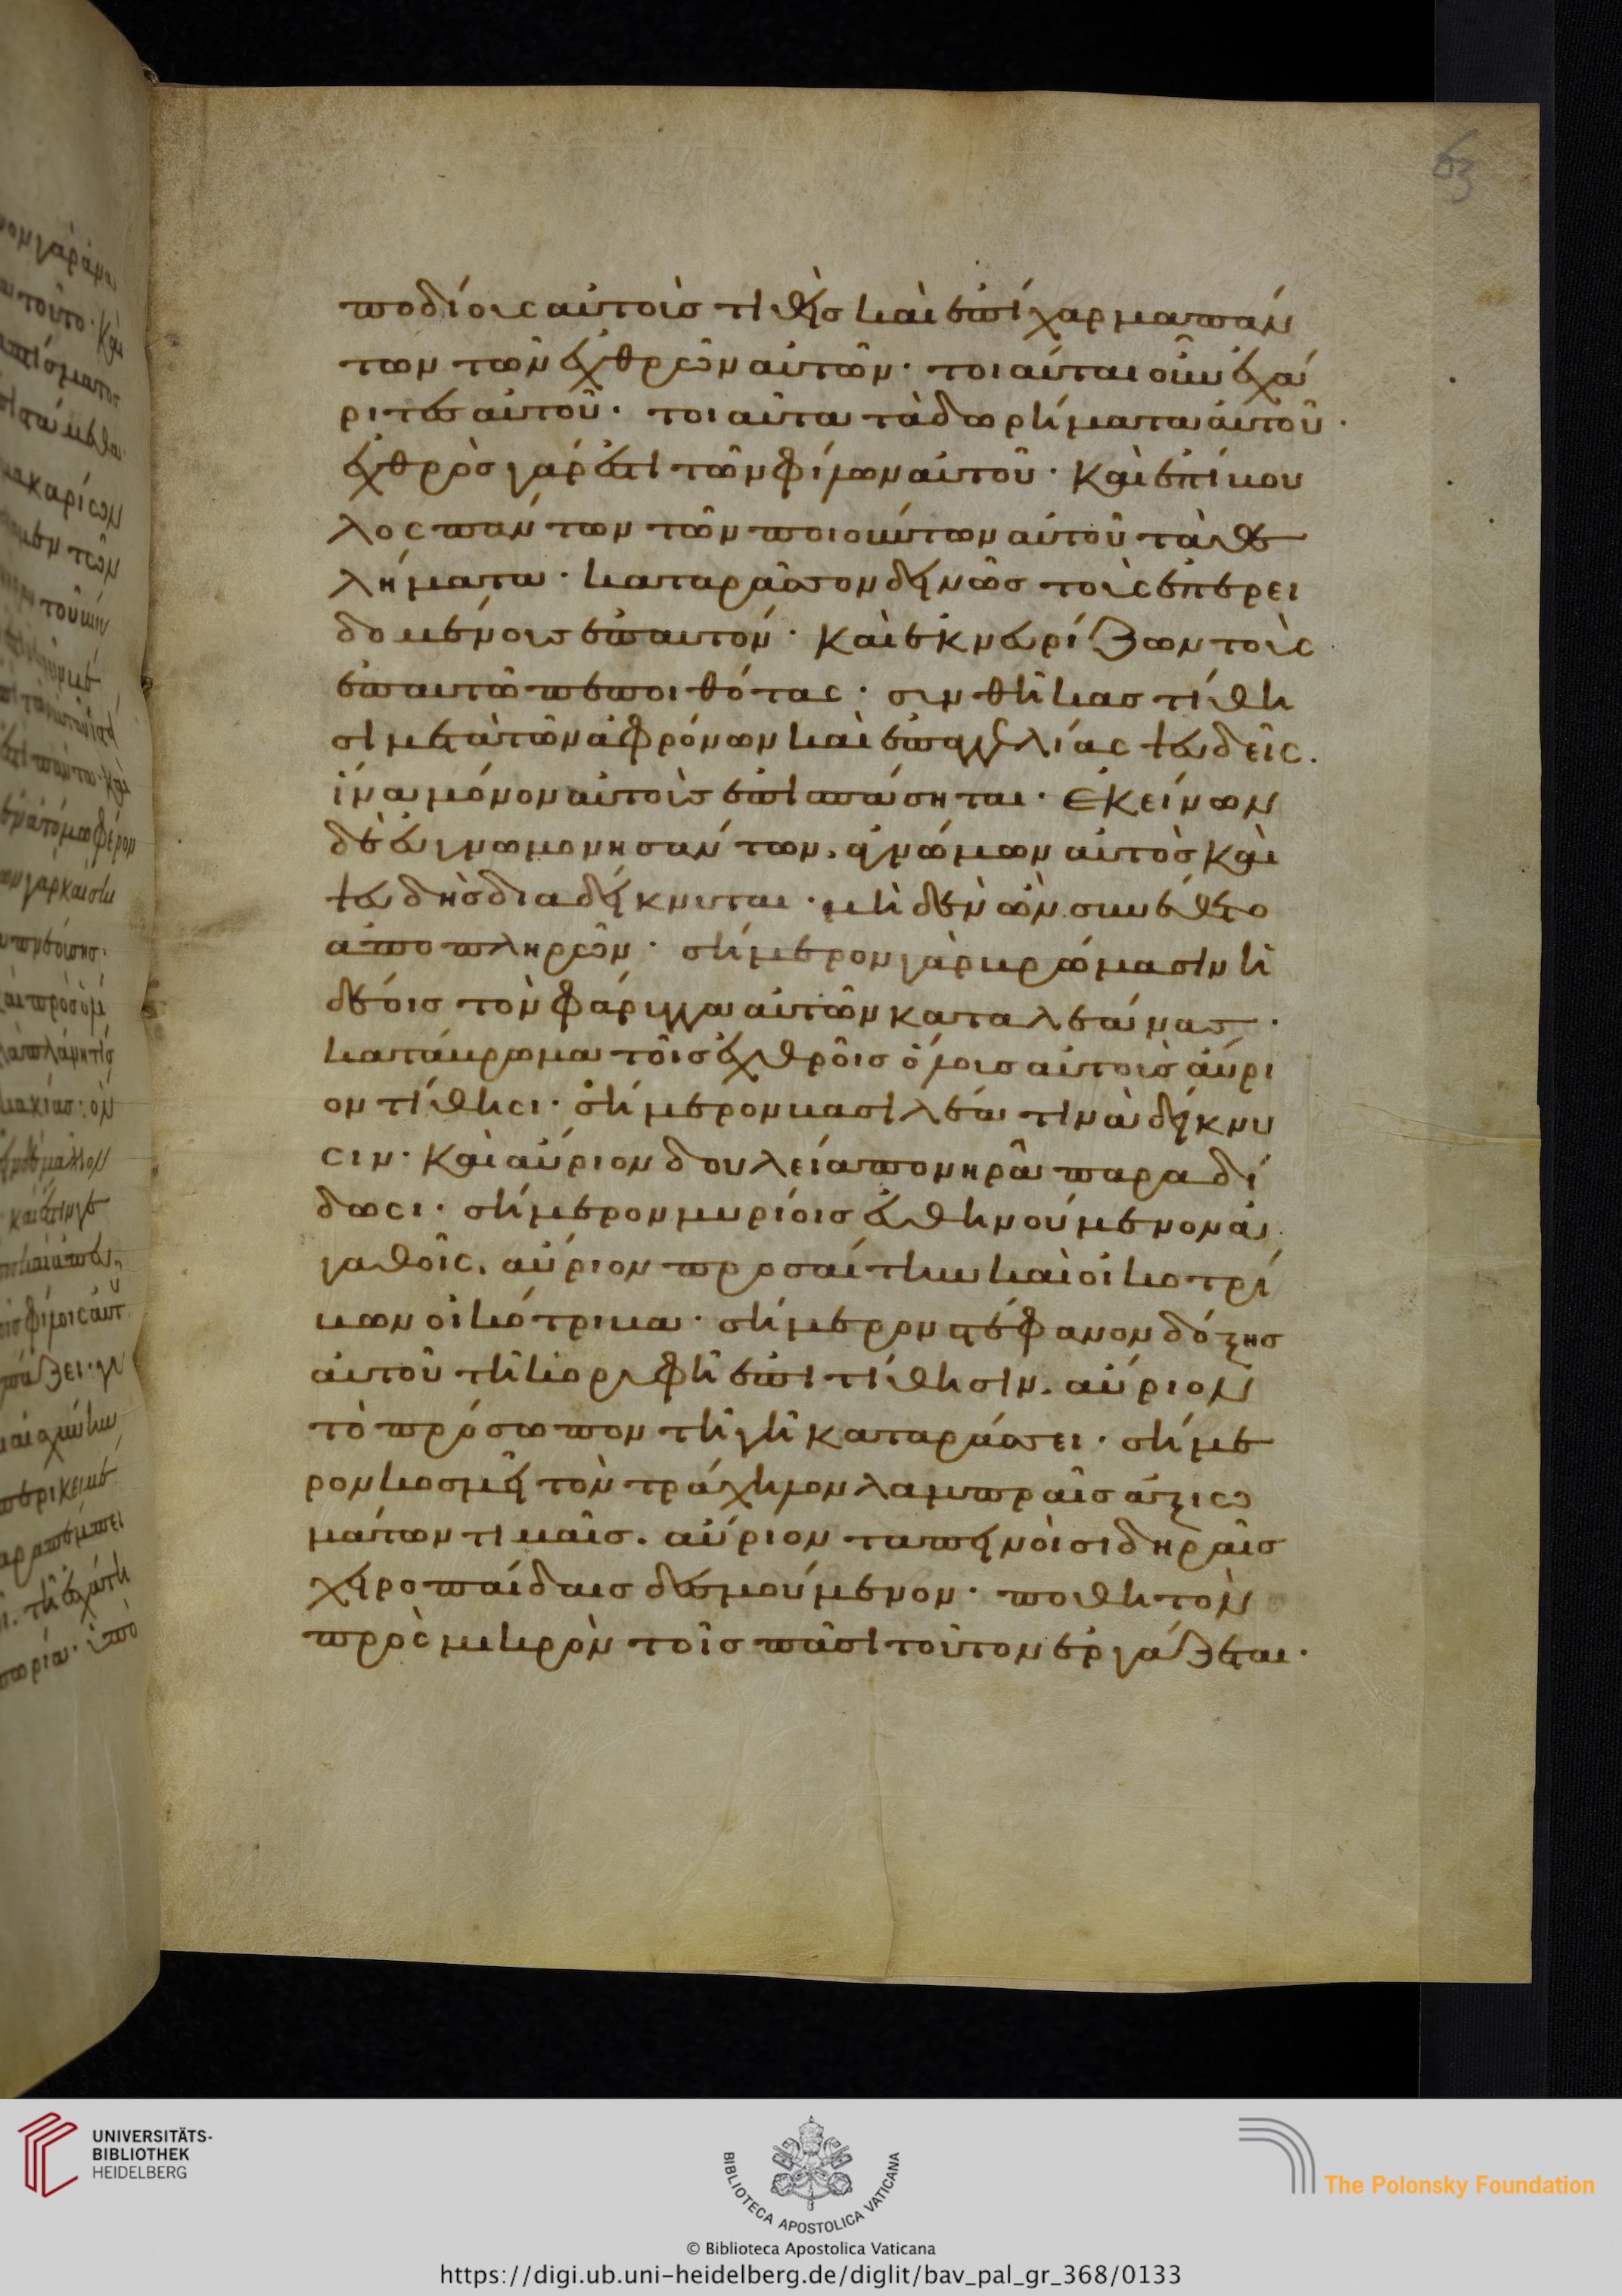 63
ποδίους αὐτοῖς τιθεὶς καὶ ἐπίχαρμα πάν
των τῶν ἐχθρῶν αὐτῶν· τοιαῦται οὖν αἱ χά
ριτες αὐτοῦ· τοιαῦτα τὰ δωρήματα αὐτοῦ·
ἐχθρὸς γάρ ἐστι τῶν φίλων αὐτοῦ· καὶ ἐπίβου
λος πάντων τῶν ποιούντων αὐτοῦ τὰ θε
λήματα· καταράσσον δεινῶς τοὺς ἐπερει
δομένους ἐπ αυτόν· καὶ ἐκνευρίζων τοὺς
ἐπ αυτῶ πεποιθότας· συνθήκας τίθη
σι μετὰ τῶν ἀφρόνων καὶ ἐπαγγελίας ψευδεῖς.
ἵνα μόνον αὐτοὺς ἐπισπάσηται· ἐκείνων
δὲ εὐγνωμονησάντων. ἀγνώμων αὐτὸς καὶ
ψευδὴς διαδείκνυται· μηδὲν ὧν συνέθετο
αποπληρῶν· σήμερον γὰρ βρώμασιν ἡ
δέοις τὸν φάρυγγα αὐτῶν καταλεάνας·
κατάβρωμα τοῖς ἐχθροῖς ὅλους αὐτοὺς αὔρι
ον τίθησι· σήμερον βασιλέα τινὰ δείκνυ
σιν· καὶ αὔριον δουλεία πονηρᾶ παραδί
δωσι· σήμερον μυρίοις εὐθηνούμενον ἀ
γαθοῖς. αὔριον προσαίτην καὶ οἰκοτρί
βων οἰκότριβα· σήμερον στέφανον δόξης
αὐτοῦ τῆ κορυφῆ ἐπιτίθησιν. αὔριον
τὸ πρόσωπον τῆ γῆ καταράσσει· σήμε
ρον κοσμεῖ τὸν τράχηλον λαμπραῖς ἀξιω
μάτων τιμαῖς. αὔριον ταπεινοῖ σιδηραῖς
χειροπαίδαις δεσμούμενον· ποθητὸν
πρὸς μικρὸν τοῖς πᾶσι τοῦτον ἐργάζεται·
UNIVERSITÄTS-
BIBLIOTHEK
HEIDELBERG
BIBLIOTECA APOSTOLICA VATICANA
The Polonsky Foundation
© Biblioteca Apostolica Vaticana
https://digi.ub.uni-heidelberg.de/diglit/bav_pal_gr_368/0133